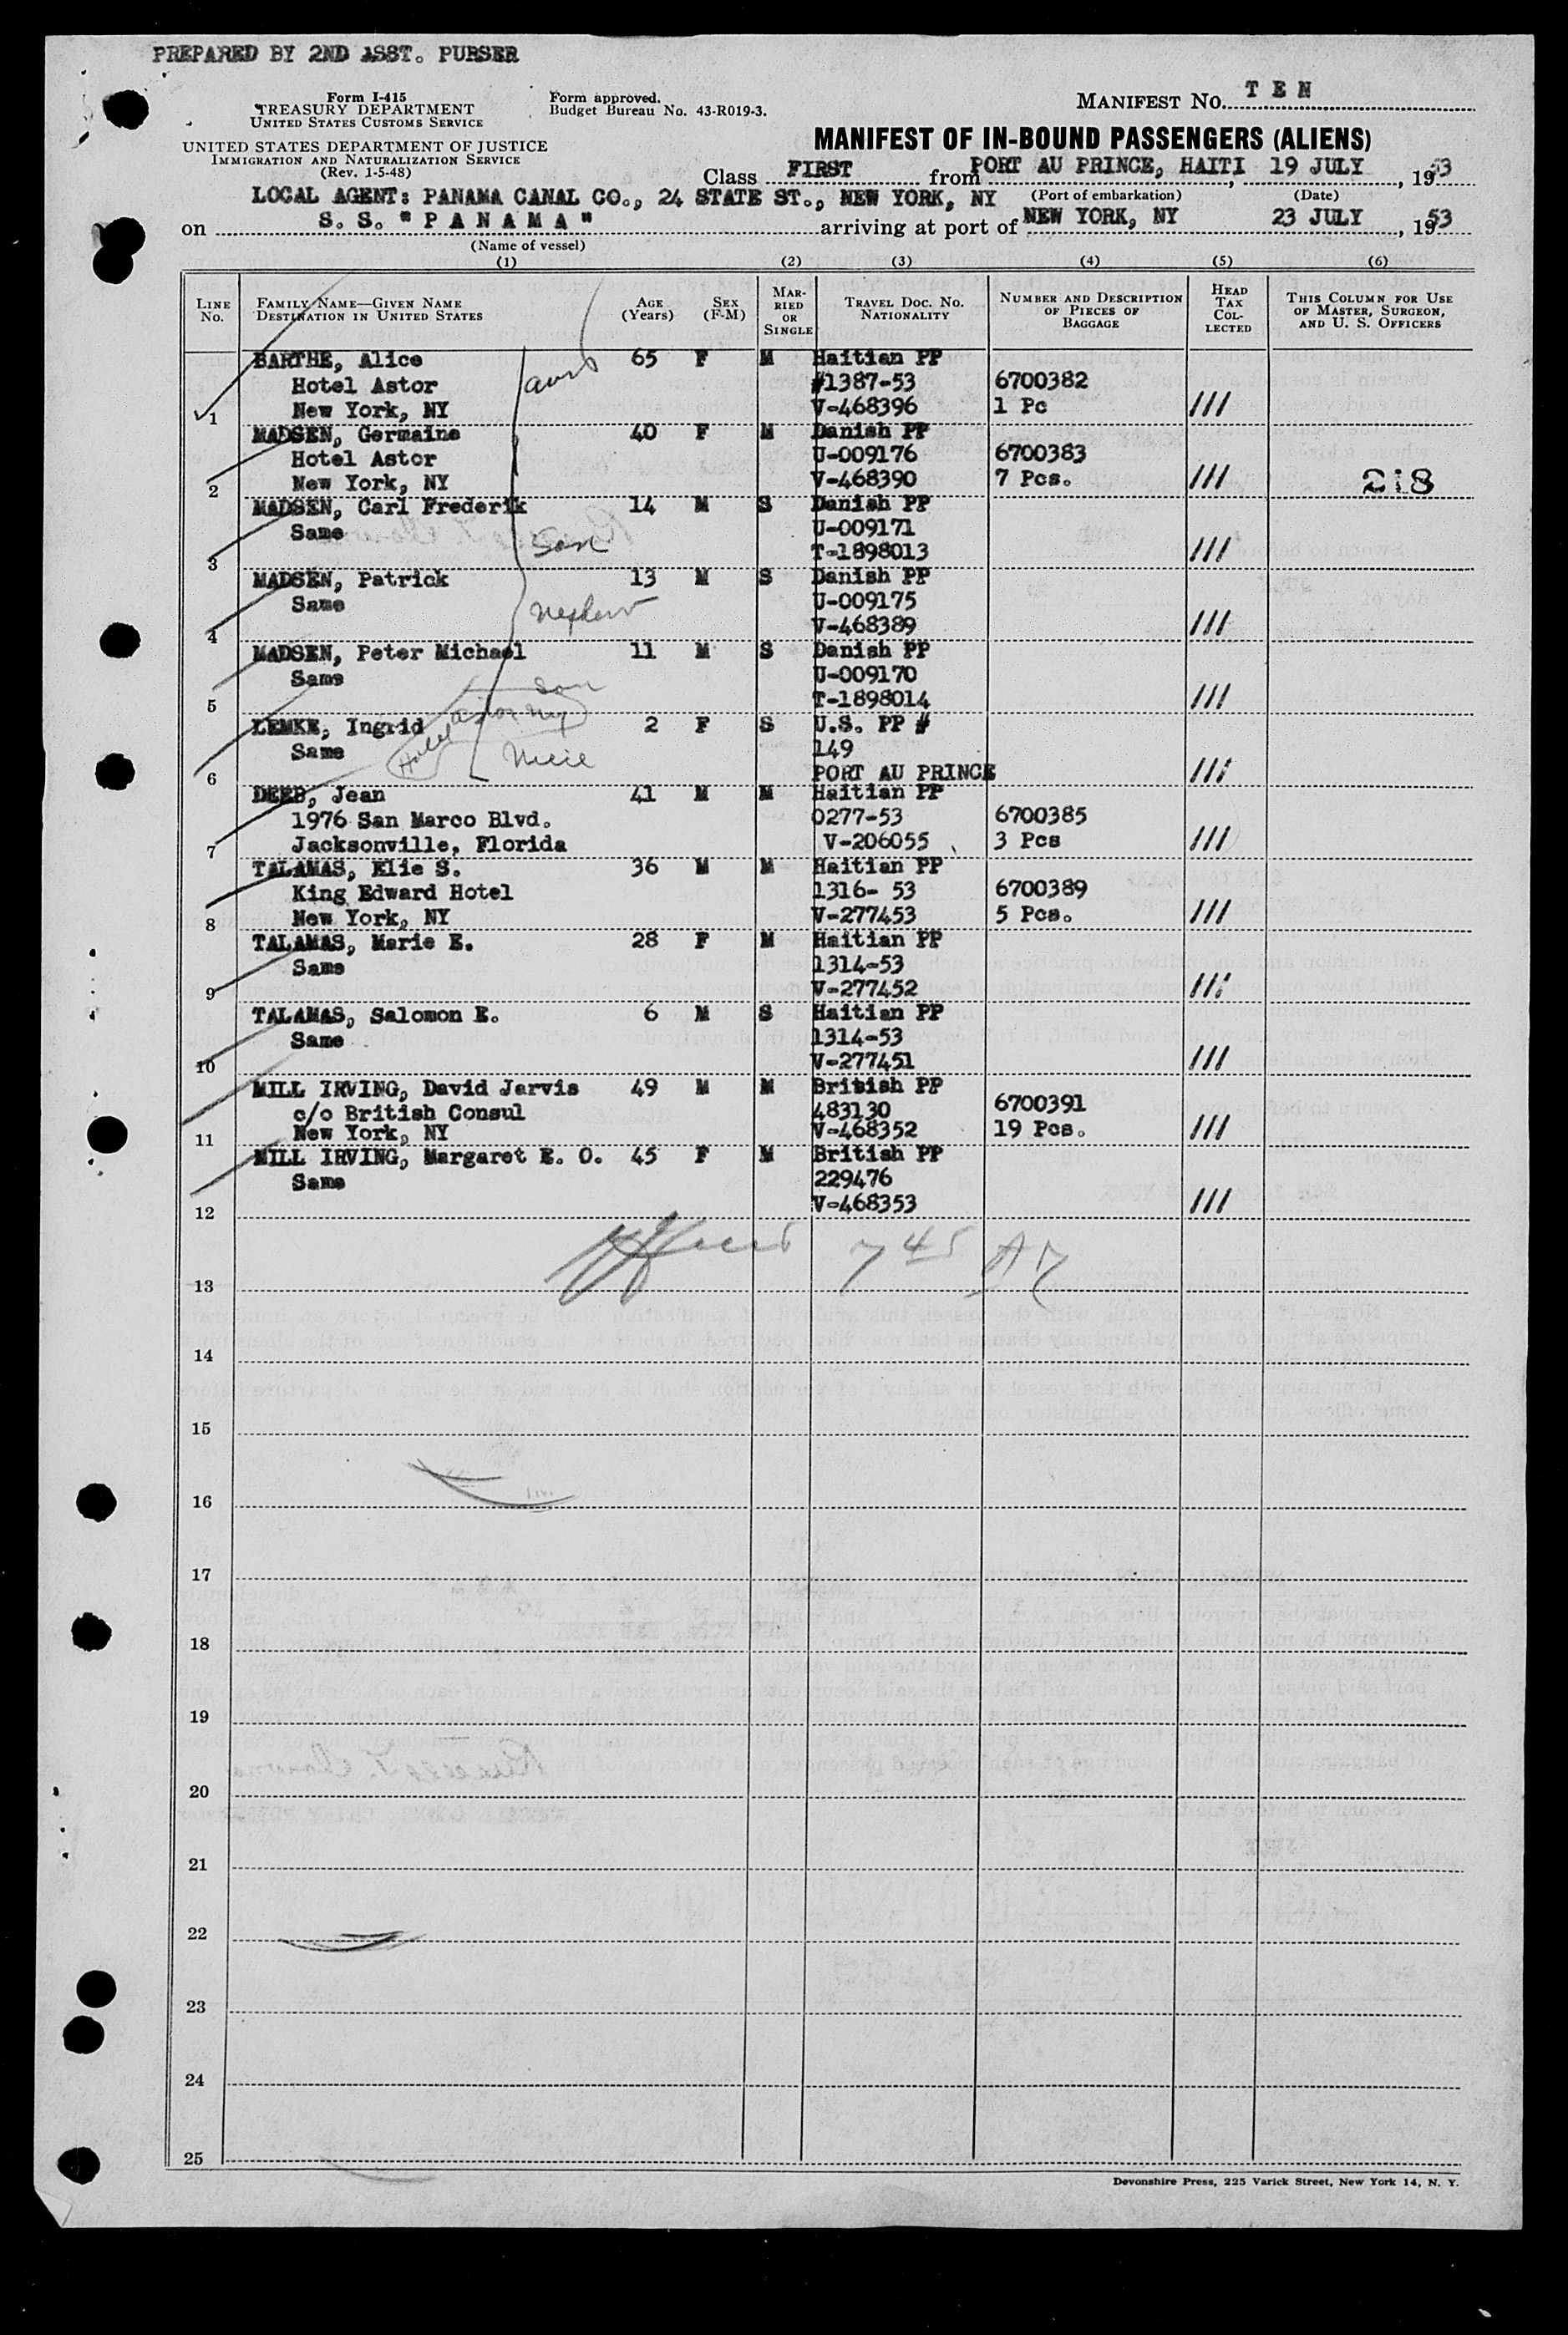 PREPARED BY 2ND ASST. PURSER
Form I-415
TREASURY DEPARTMENT
UNITED STATES CUSTOMS SERVICE
UNITED STATES DEPARTMENT OF JUSTICE
IMMIGRATION AND NATURALIZATION SERVICE
(Rev. 1-5-48)
Form approved.
Budget Bureau No. 43-R019-3.
MANIFEST No. TEN
MANIFEST OF IN-BOUND PASSENGERS (ALIENS)
Class FIRST from PORT AU PRINCE, HAITI 19 JULY, 1953
LOCAL AGENT: PANAMA CANAL CO., 24 STATE ST., NEW YORK, NY (Port of embarkation) (Date)
on S. S. "P A N A M A" arriving at port of NEW YORK, NY 23 JULY, 1953
(Name of vessel)
(1) (2) (3) (4) (5) (6)
LINE No. FAMILY NAME—GIVEN NAME DESTINATION IN UNITED STATES AGE (Years) SEX (F-M) MARRIED OR SINGLE TRAVEL DOC. NO. NATIONALITY NUMBER AND DESCRIPTION OF PIECES OF BAGGAGE HEAD TAX COLLECTED THIS COLUMN FOR USE OF MASTER, SURGEON, AND U. S. OFFICERS
BARTHE, Alice 65 F M Haitian PP
Hotel Astor aunt #1387-53 6700382
1 New York, NY V-468396 1 Pc ///
MADSEN, Germaine 40 F M Danish PP
Hotel Astor U-009176 6700383
2 New York, NY V-468390 7 Pcs. /// 218
MADSEN, Carl Frederik 14 M S Danish PP
Same U-009171
3 son T-1898013 ///
MADSEN, Patrick 13 M S Danish PP
Same nephew U-009175
4 V-468389 ///
MADSEN, Peter Michael 11 M S Danish PP
Same son U-009170
5 Hotel Astor NY T-1898014 ///
LEMKE, Ingrid 2 F S U.S. PP #
Same Niece 149
6 PORT AU PRINCE ///
DEEB, Jean 41 M M Haitian PP
1976 San Marco Blvd. 0277-53 6700385
7 Jacksonville, Florida V-206055 3 Pcs ///
TALAMAS, Elie S. 36 M M Haitian PP
King Edward Hotel 1316- 53 6700389
8 New York, NY V-277453 5 Pcs. ///
TALAMAS, Marie E. 28 F M Haitian PP
Same 1314-53
9 V-277452 ///
TALAMAS, Salomon E. 6 M S Haitian PP
Same 1314-53
10 V-277451 ///
MILL IRVING, David Jarvis 49 M M British PP
c/o British Consul 483130 6700391
11 New York, NY V-468352 19 Pcs. ///
MILL IRVING, Margaret E. O. 45 F M British PP
Same 229476
12 V-468353 ///
745
13
14
15
16
17
18
19
20
21
22
23
24
25
Devonshire Press, 225 Varick Street, New York 14, N. Y.